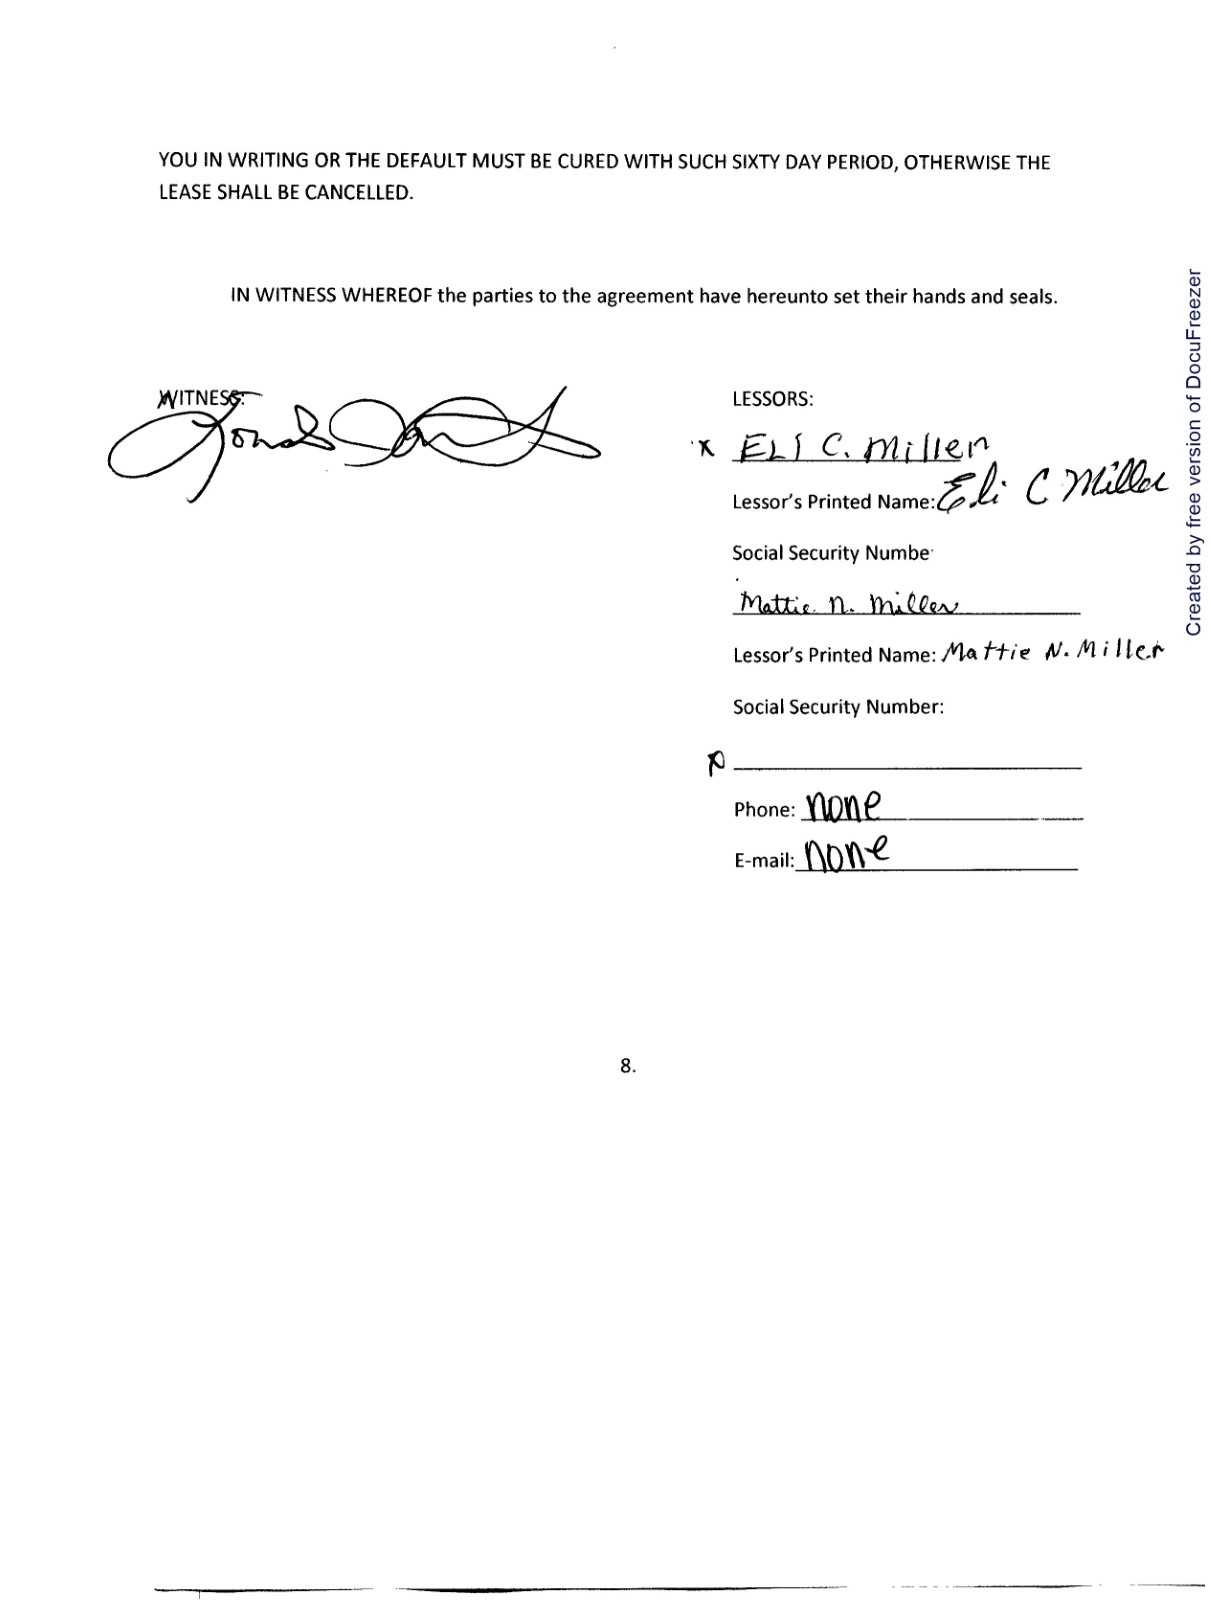 YOU IN WRITING OR THE DEFAULT MUST BE CURED WITH SUCH SIXTY DAY PERIOD, OTHERWISE THE
LEASE SHALL BE CANCELLED.
IN WITNESS WHEREOF the parties to the agreement have hereunto set their hands and seals.
WITNESS:
LESSORS:
x ELI C. Miller
Lessor's Printed Name: Eli C Miller
Social Security Numbe
Mattie N. Miller
Lessor's Printed Name: Mattie N. Miller
Social Security Number:
Phone: none
E-mail: none
8.
Created by free version of DocuFreezer